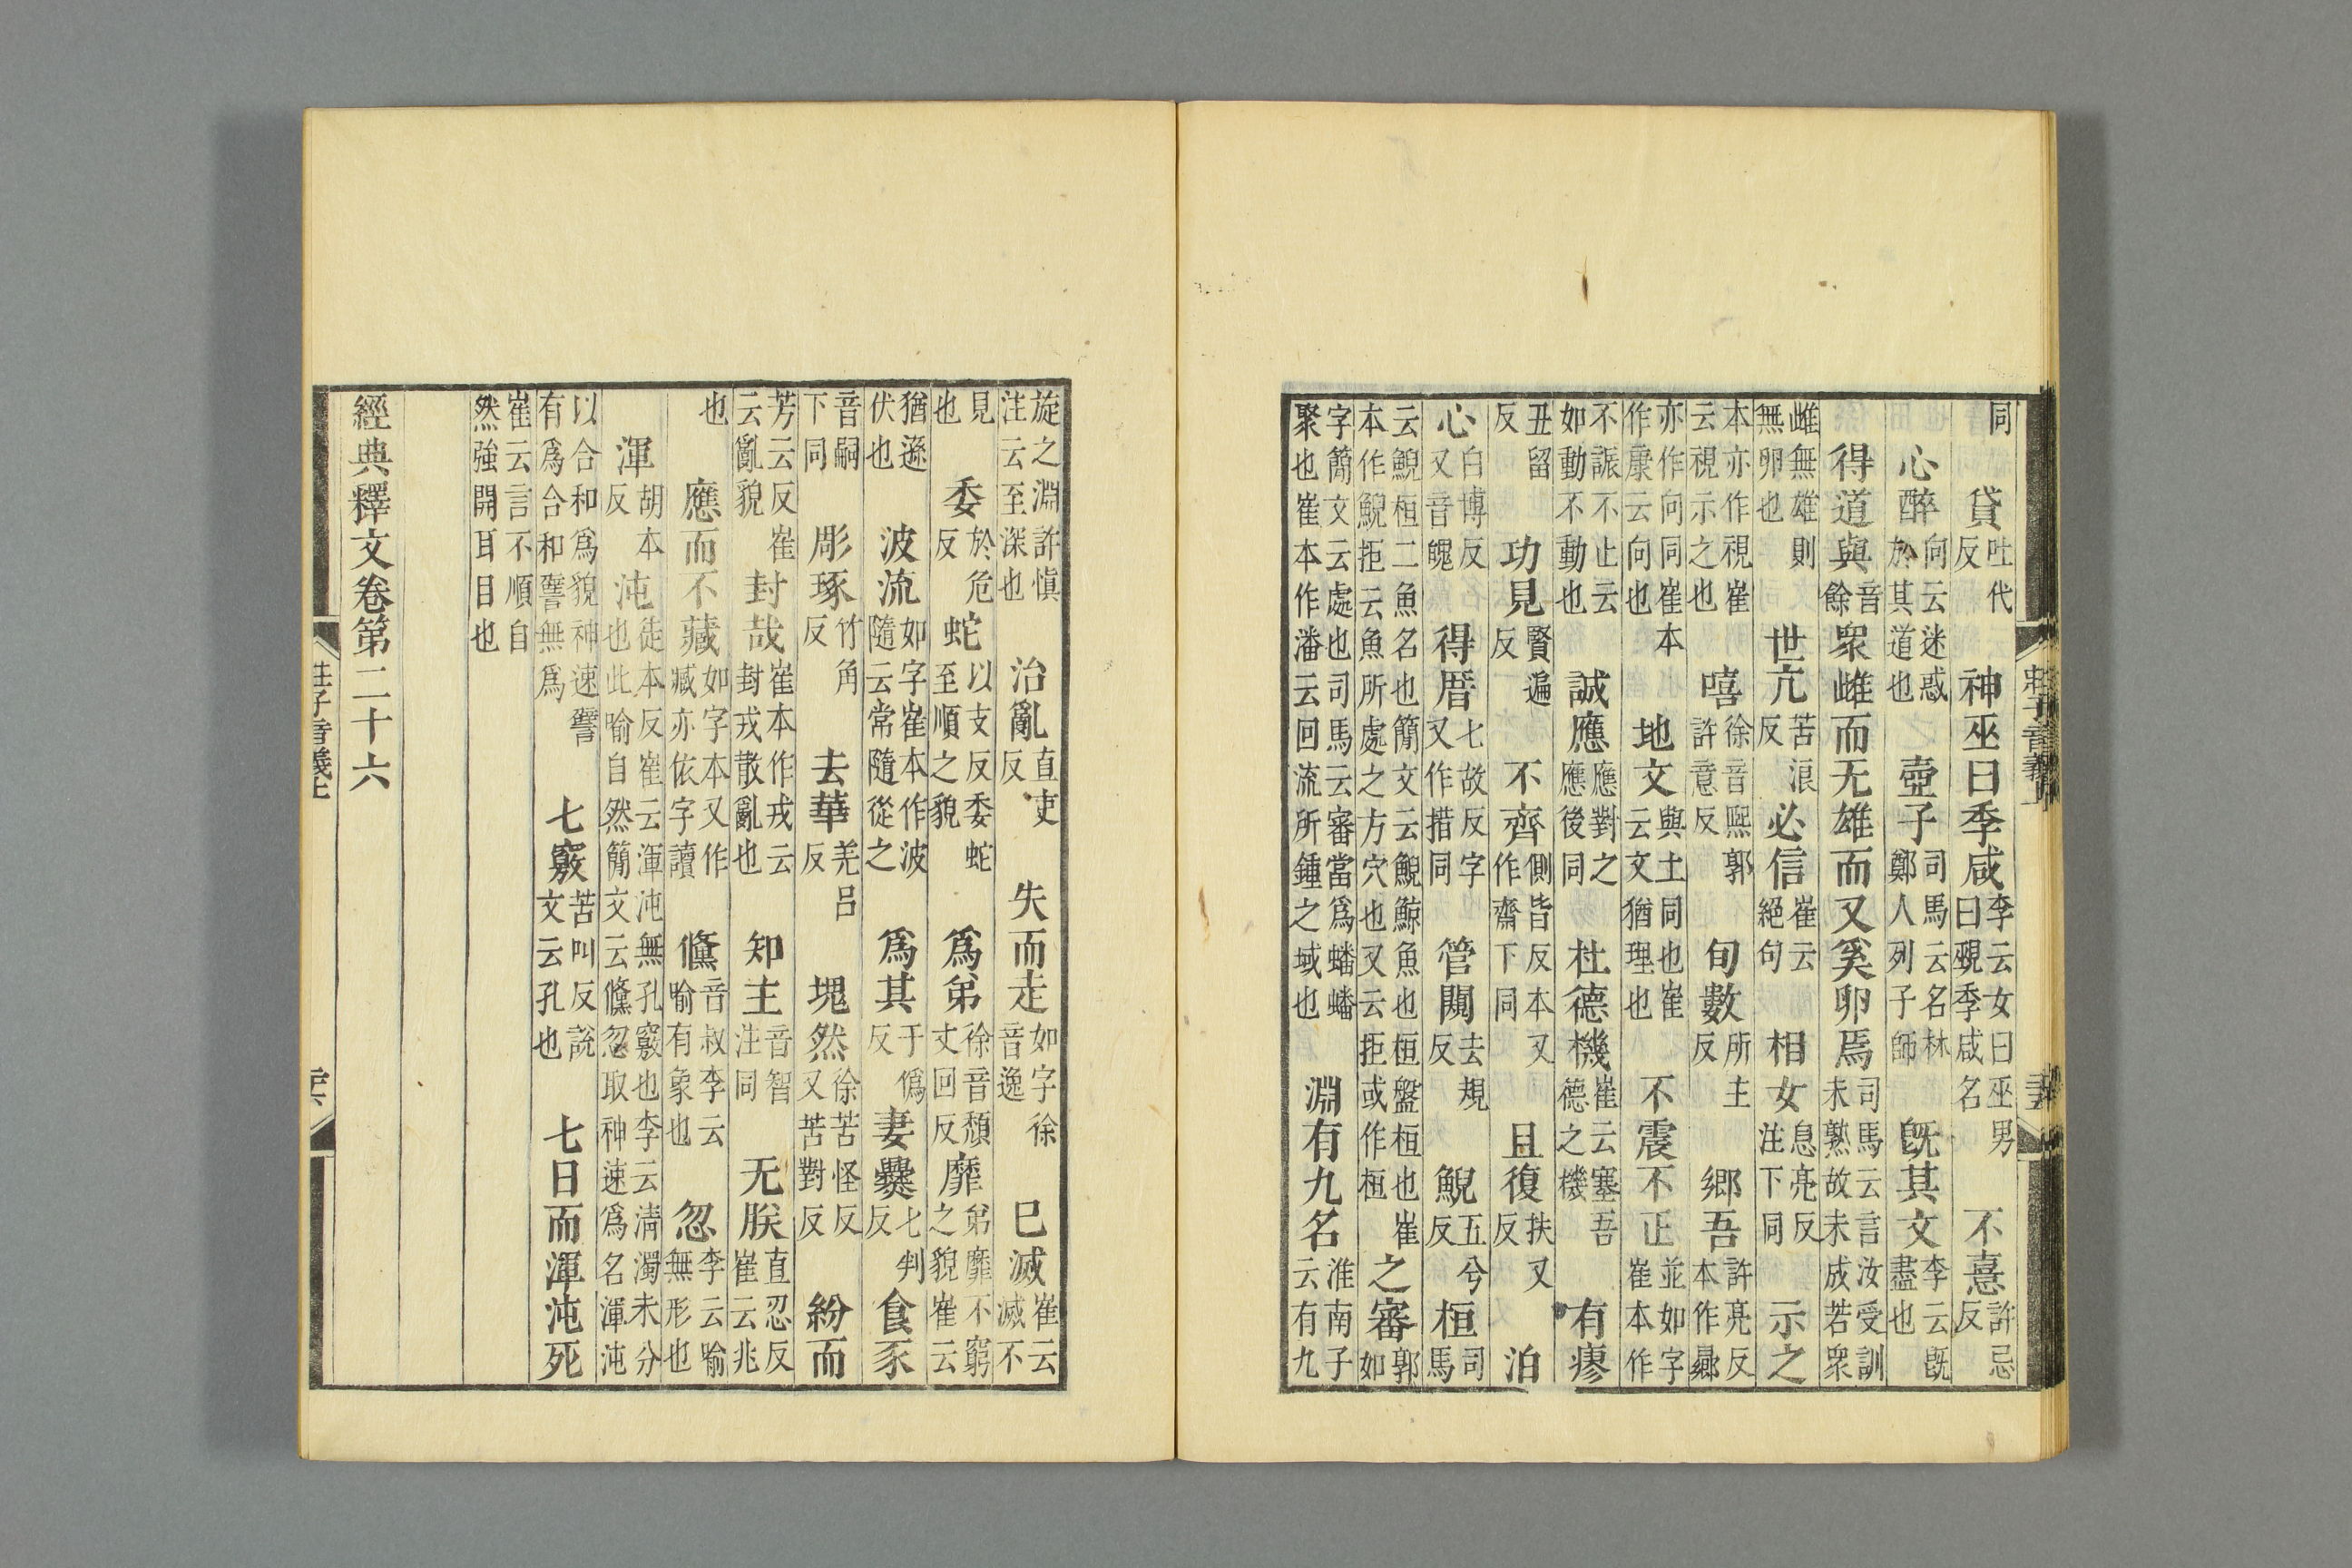 同 貸吐代反 神巫曰季咸李云女曰巫男曰覡季咸名 不憙許忌反
心醉向云迷惑於其道也 壺子司馬云名林鄭人列子師 旣其文李云旣盡也
得道與音餘 衆雌而无雄而又奚卵焉司馬云言汝受訓未熟故未成若衆
雌無雄則無卵也 世亢苦浪反 必信崔云絕句 相女息亮反注下同 示之
本亦作視崔云視示之也 嘻徐音熙郭許意反 旬數所主反 鄉吾許亮反本作曏
亦作向同崔本作康云向也 地文與土同也崔云文猶理也 不震不正並如字崔本作
不誫不止云如動不動也 誠應應對之應後同 杜德機崔云塞吾德之機 有瘳
丑留反 功見賢遍反 不齊側皆反本又作齋下同 且復扶又反 泊
心白博反又音魄 得厝七故反字又作措同 管闚去規反 鯢五兮反 桓司馬
云鯢桓二魚名也簡文云鯢鯨魚也桓盤桓也崔本作鯢拒云魚所處之方穴也又云拒或作桓 之審郭如
字簡文云處也司馬云審當爲蟠蟠聚也崔本作潘云回流所鍾之域也 淵有九名淮南子云有九
莊子音義上
旋之淵許愼注云至深也 治亂直吏反 失而走如字徐音逸 已滅崔云滅不
見也 委於危反 蛇以支反委蛇至順之貌 爲弟徐音頹丈回反 靡弟靡不窮之貌崔云
猶遜伏也 波流如字崔本作波隨云常隨從之 爲其于僞反 妻爨七判反 食豕
音嗣下同 彫琢竹角反 去華羌呂反 塊然徐苦怪反又苦對反 紛而
芳云反崔云亂貌 封哉崔本作戎云封戎散亂也 知主音智注同 无朕直忍反崔云兆
也 應而不藏如字本又作臧亦依字讀 儵音叔李云喻有象也 忽李云喻無形也
渾胡本反 沌徒本反崔云渾沌無孔竅也李云清濁未分也此喻自然簡文云儵忽取神速爲名渾沌
以合和爲貌神速譬有爲合和譬無爲 七竅苦叫反說文云孔也 七日而渾沌死
崔云言不順自然強開耳目也
經典釋文卷第二十六
莊子音義上